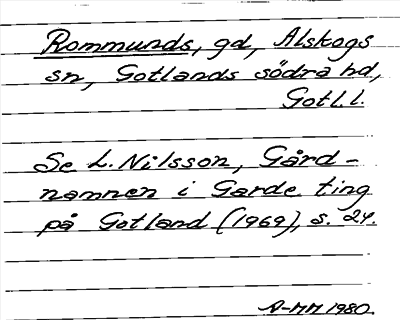 Rommunds, gd, Alskogs
sn, Gotlands södra hd,
Gotl. l.
Se L. Nilsson, Gård-
namnen i Garde ting
på Gotland (1969), s. 24.
A-MM 1980.